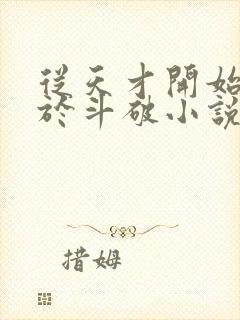 從天才開始
於斗破小說
措姆